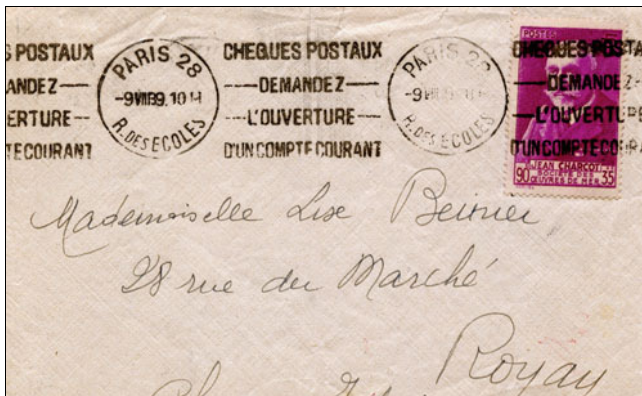 S POSTAUX
ANDEZ
ERTURE
TECOURANT
PARIS 28
-9 VIII 39. 10 H
R. DES ECOLES
CHEQUES POSTAUX
DEMANDEZ
L'OUVERTURE
D'UN COMPTE COURANT
PARIS 28
-9 VIII 39. 10 H
R. DES ECOLES
CHEQUES POSTAUX
DEMANDEZ
L'OUVERTURE
D'UN COMPTE COURANT
POSTES
JEAN CHARCOT
SOCIETE DES
ŒUVRES DE MER
90
35
Mademoiselle Lise
28 rue du Marché
Royan